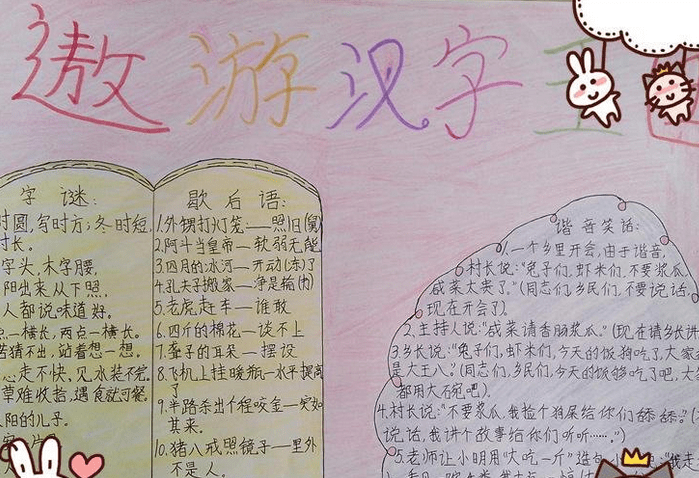 遨游汉字王
字谜:
时圆,写时方;冬时短,
时长。
字头,木字腰,
阳出来从下照,
人都说味道好。
点一横长,两点一横长。
苦猜不出,站着想一想。
心走不快,见水装不完。
草难收拾,遇食就可餐。
太阳的儿子。
歇后语:
1.外甥打灯笼——照旧(舅)
2.阿斗当皇帝——软弱无能
3.四月的冰河——开动(冻)了
4.孔夫子搬家——净是输(书)
5.老虎赶车——谁敢
6.四斤的棉花——谈不上
7.聋子的耳朵——摆设
8.飞机上挂暖瓶—水平提高
了
9.半路杀出个程咬金—突如
其来。
10.猪八戒照镜子—里外
不是人。
谐音笑话:
1.一个乡里开会,由于谐音,
村长说:“兔子们,虾米们,不要浆瓜,
咸菜太贵了。”(同志们,乡民们,不要说话,
现在开会了)
2.主持人说:“咸菜请香肠浆瓜。”(现在请乡长讲
3.乡长说:“兔子们,虾米们,今天的饭狗吃了,大家
是大王八。”(同志们,乡民们,今天的饭够吃了吧,大
都用大碗吧).
4.村长说:“不要浆瓜,我捡个狗屎给你们舔舔。”(
说话,我讲个故事给你们听听……。”)
5.老师让小明用“大吃一斤”造句,小
:“我走